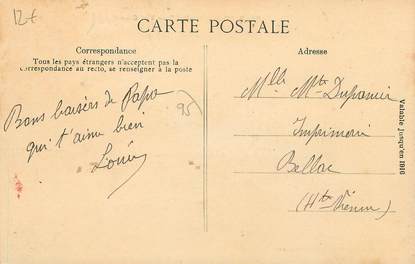 12€
CARTE POSTALE
Correspondance
Tous les pays étrangers n'acceptent pas la
correspondance au recto, se renseigner à la poste
Bons baisers de Papa
qui t'aime bien
Louis
95
Adresse
Mlle Mte Dupanier
Imprimerie
Bellac
(Hte Vienne)
Valable jusqu'en 1916